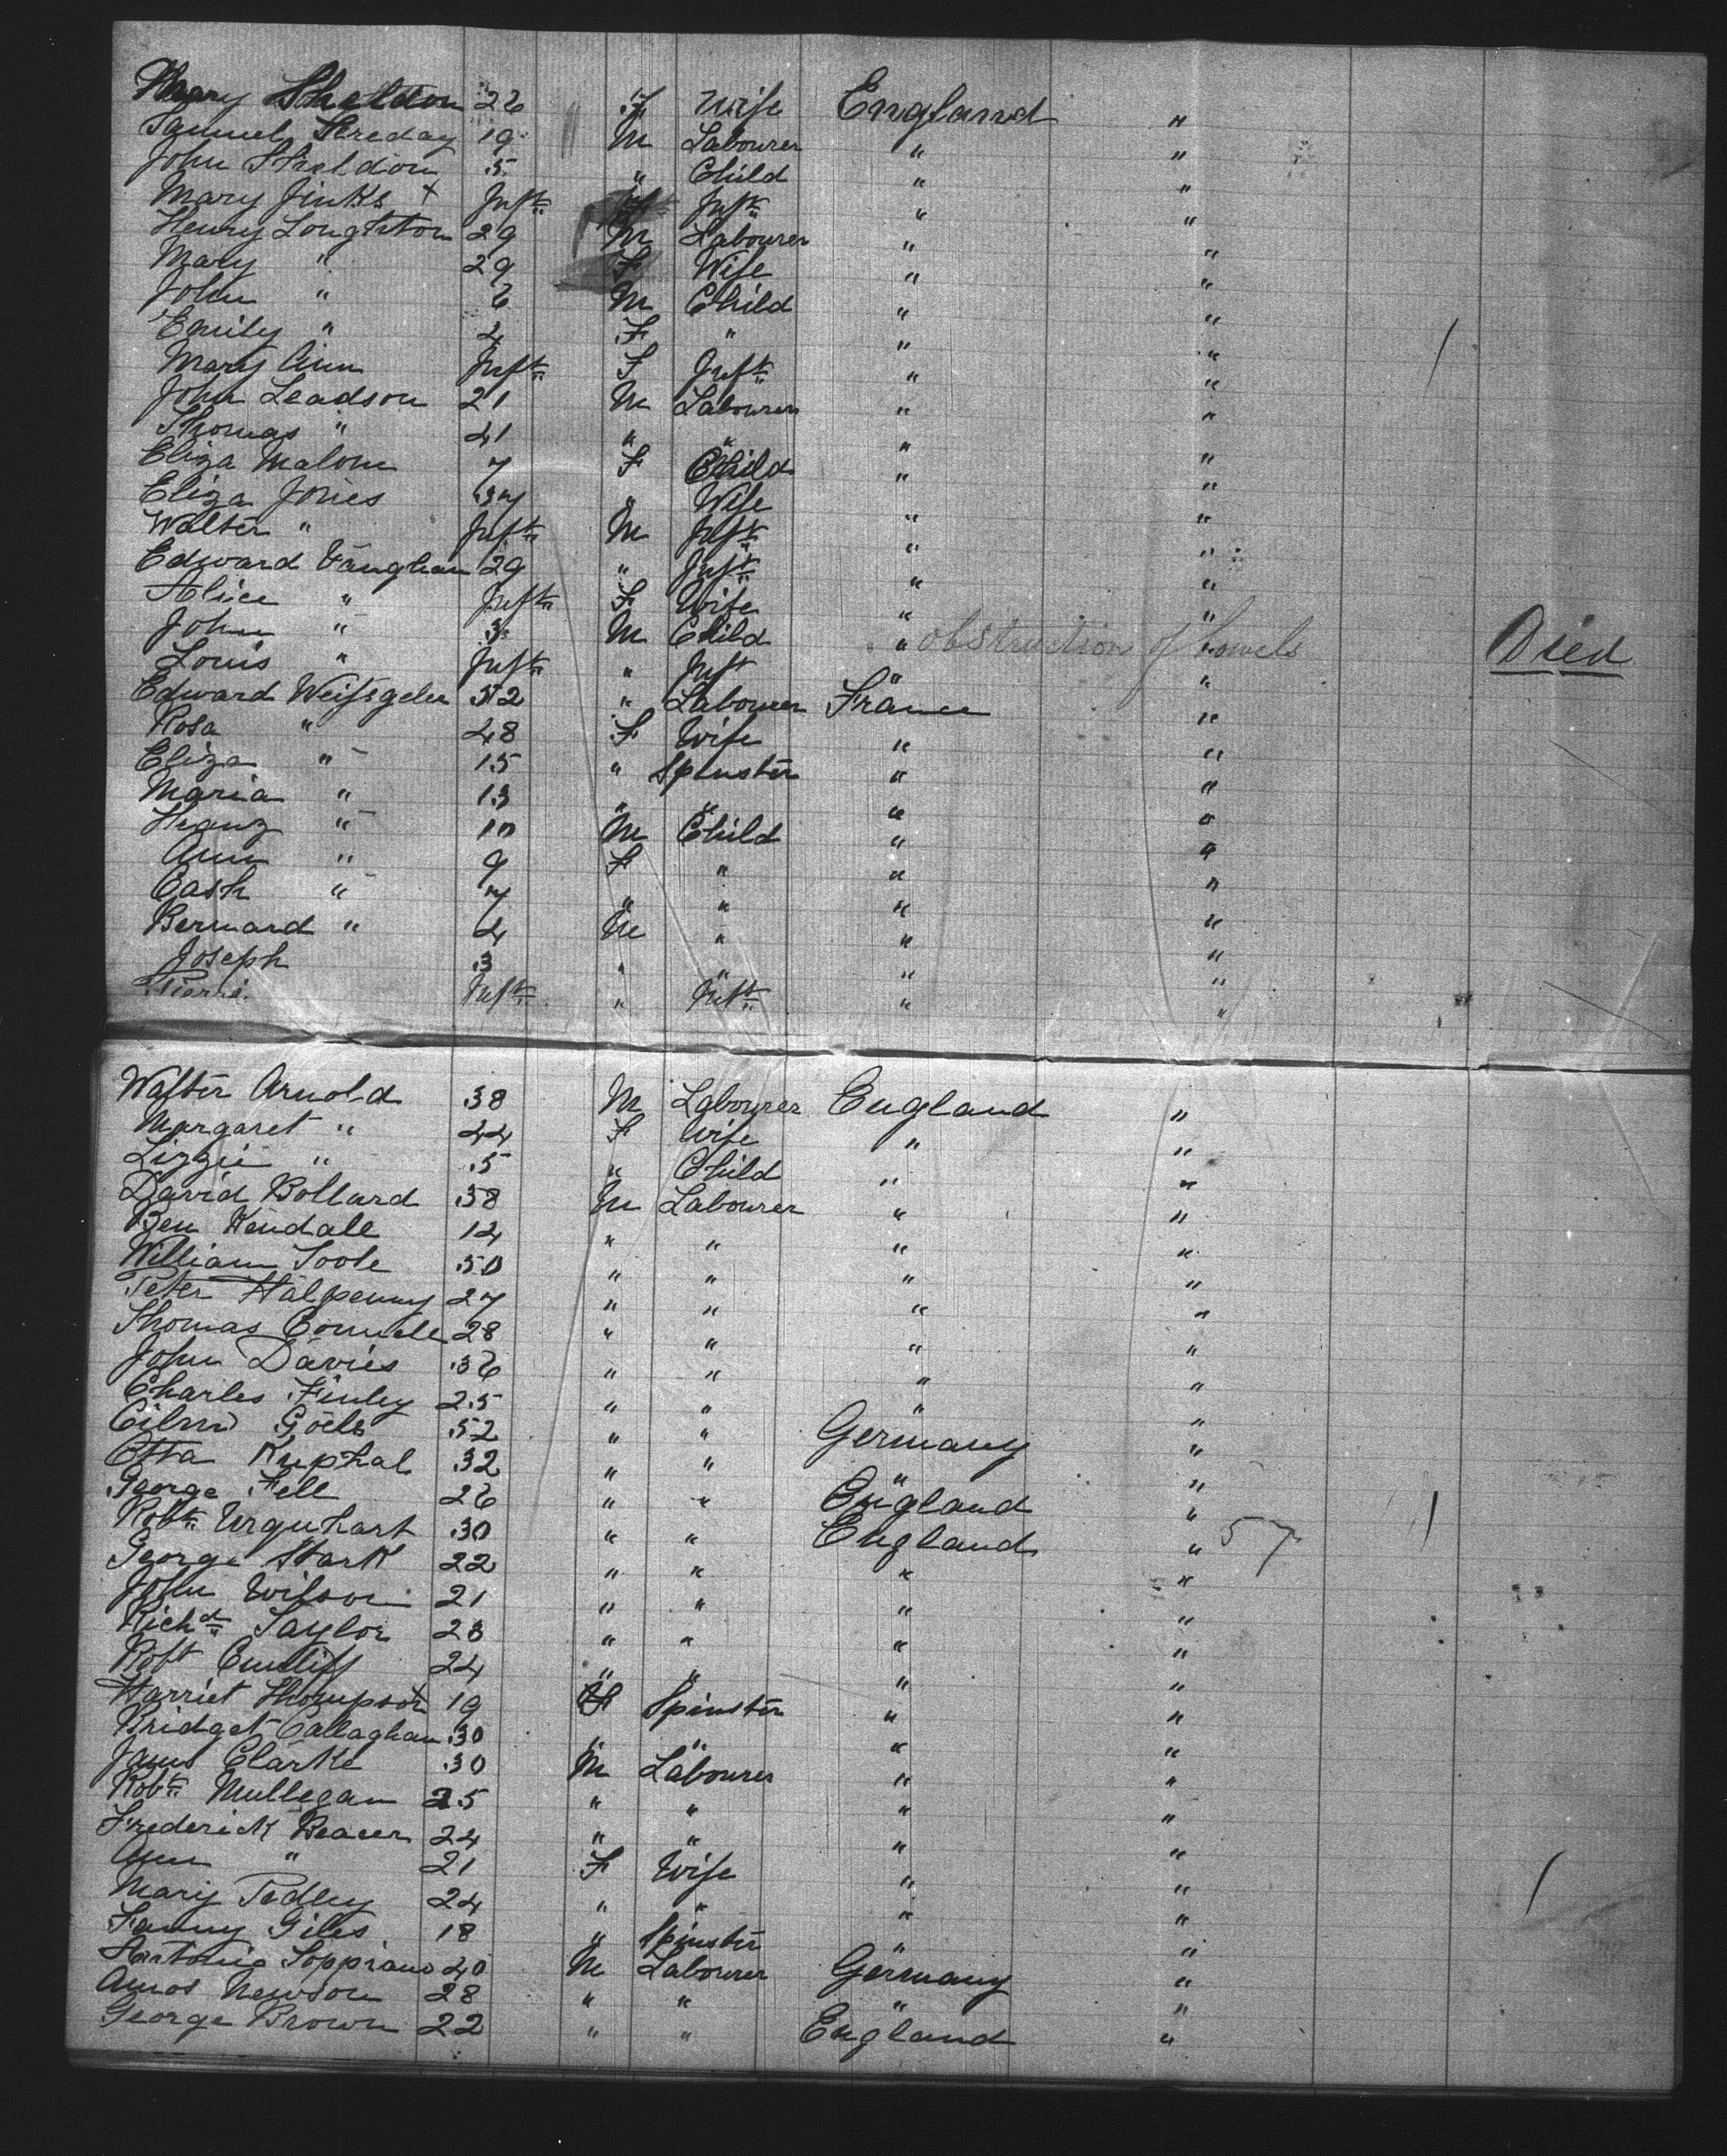 Mary Sheldon 26 F Wife England "
Samuel Hreday 19 M Labourer " "
John Sheldon 5 " Child " "
Mary Jinks + Inft Inft " "
Henry Loughton 29 M Labourer " "
Mary " 29 F Wife " "
John " 6 M Child " "
Emily " 4 F " " "
Mary Ann Inft F Inft " "
John Leadson 21 M Labourer " "
Thomas " 41 " " " "
Eliza Malom 7 F Child " "
Eliza Jones 37 " Wife " "
Walter " Inft M Inft " "
Edward Vaughan 29 " Inft " "
Alice " Inft F Wife " "
John " 3 M Child " obstruction of bowels Died
Louis " Inft " Inft " "
Edward Weissgeler 52 " Labourer France "
Rosa " 48 F Wife " "
Eliza " 15 " Spinster " "
Maria " 13 " " " "
Heanz " 10 M Child " "
Ann " 9 F " " "
Cash " 7 " " " "
Bernard " 4 M " " "
Joseph 3 " " " "
Pierre Inft " Inft " "
Walter Arnold 38 M Labourer England "
Margaret " 44 F Wife " "
Lizzie " 5 " Child " "
David Bollard 38 M Labourer " "
Ben Kendale 14 " " " "
William Toole 50 " " " "
Peter Halpenny 27 " " " "
Thomas Connell 28 " " " "
John Davies 36 " " " "
Charles Finley 25 " " " "
Goels 52 " " Germany "
Otta Kuphal 32 " " " "
George Fell 26 " " England "
Robt Urquhart 30 " " England " 57
George Stark 22 " " " "
John Wilson 21 " " " "
Richd Taylor 28 " " " "
Robt Cunliff 24 " " " "
Harriet Thompson 19 F Spinster " "
Bridget Callaghan 30 " " " "
James Clarke 30 M Labourer " "
Robt Mullegan 25 " " " "
Frederick Beacer 24 " " " "
Ann " 21 F Wife " "
Mary Pedley 24 " " " "
Fanny Giles 18 " Spinster " "
Antonio Soppiano 40 M Labourer Germany "
Amos Newson 28 " " " "
George Brown 22 " " England "